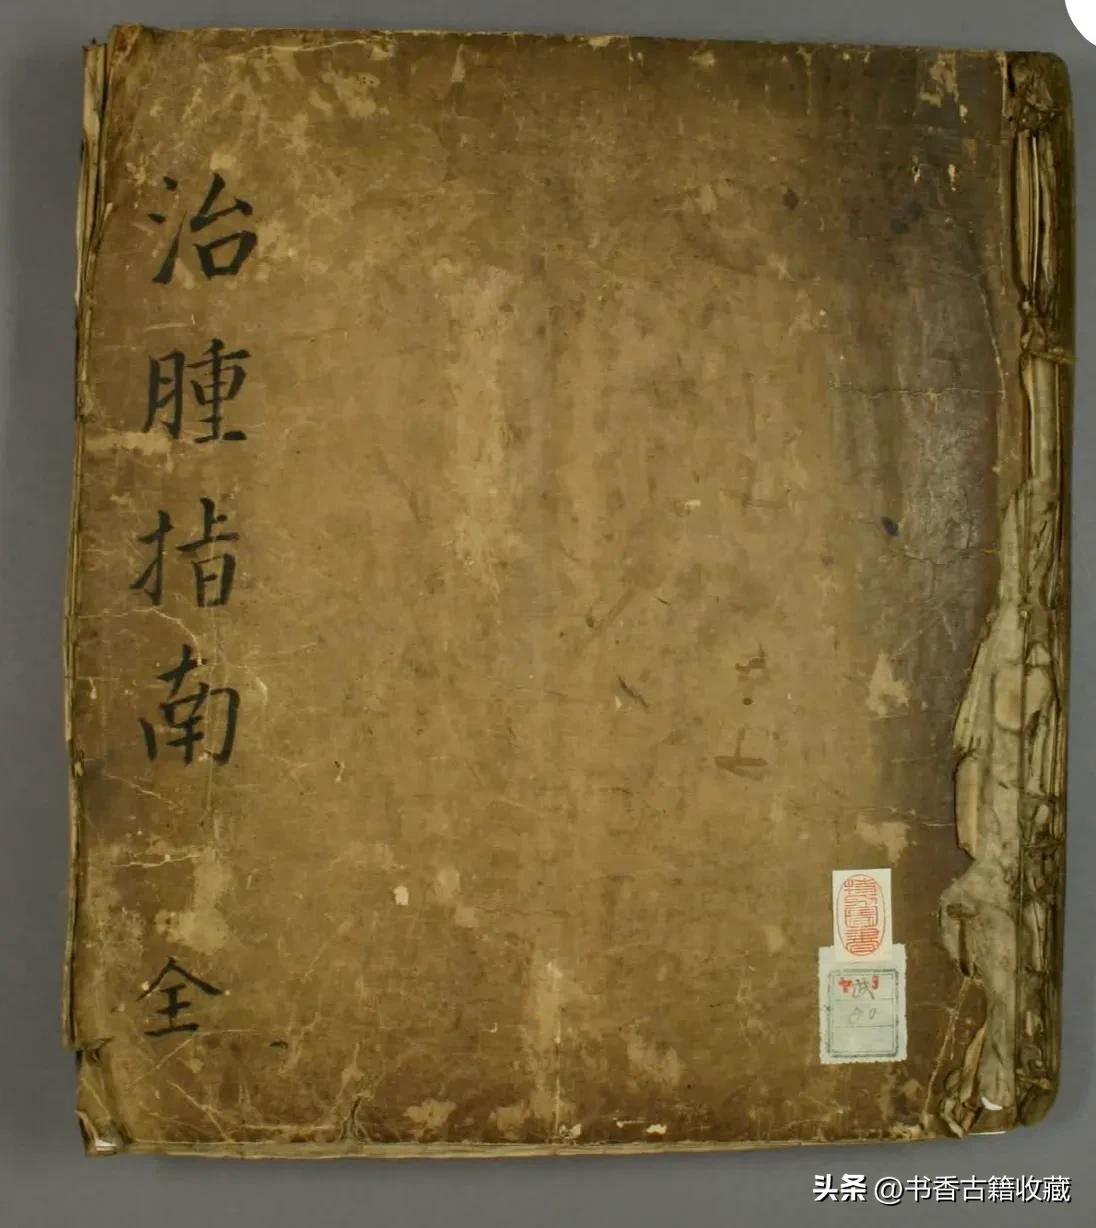 治腫指南
全
頭条 @书香古籍收藏